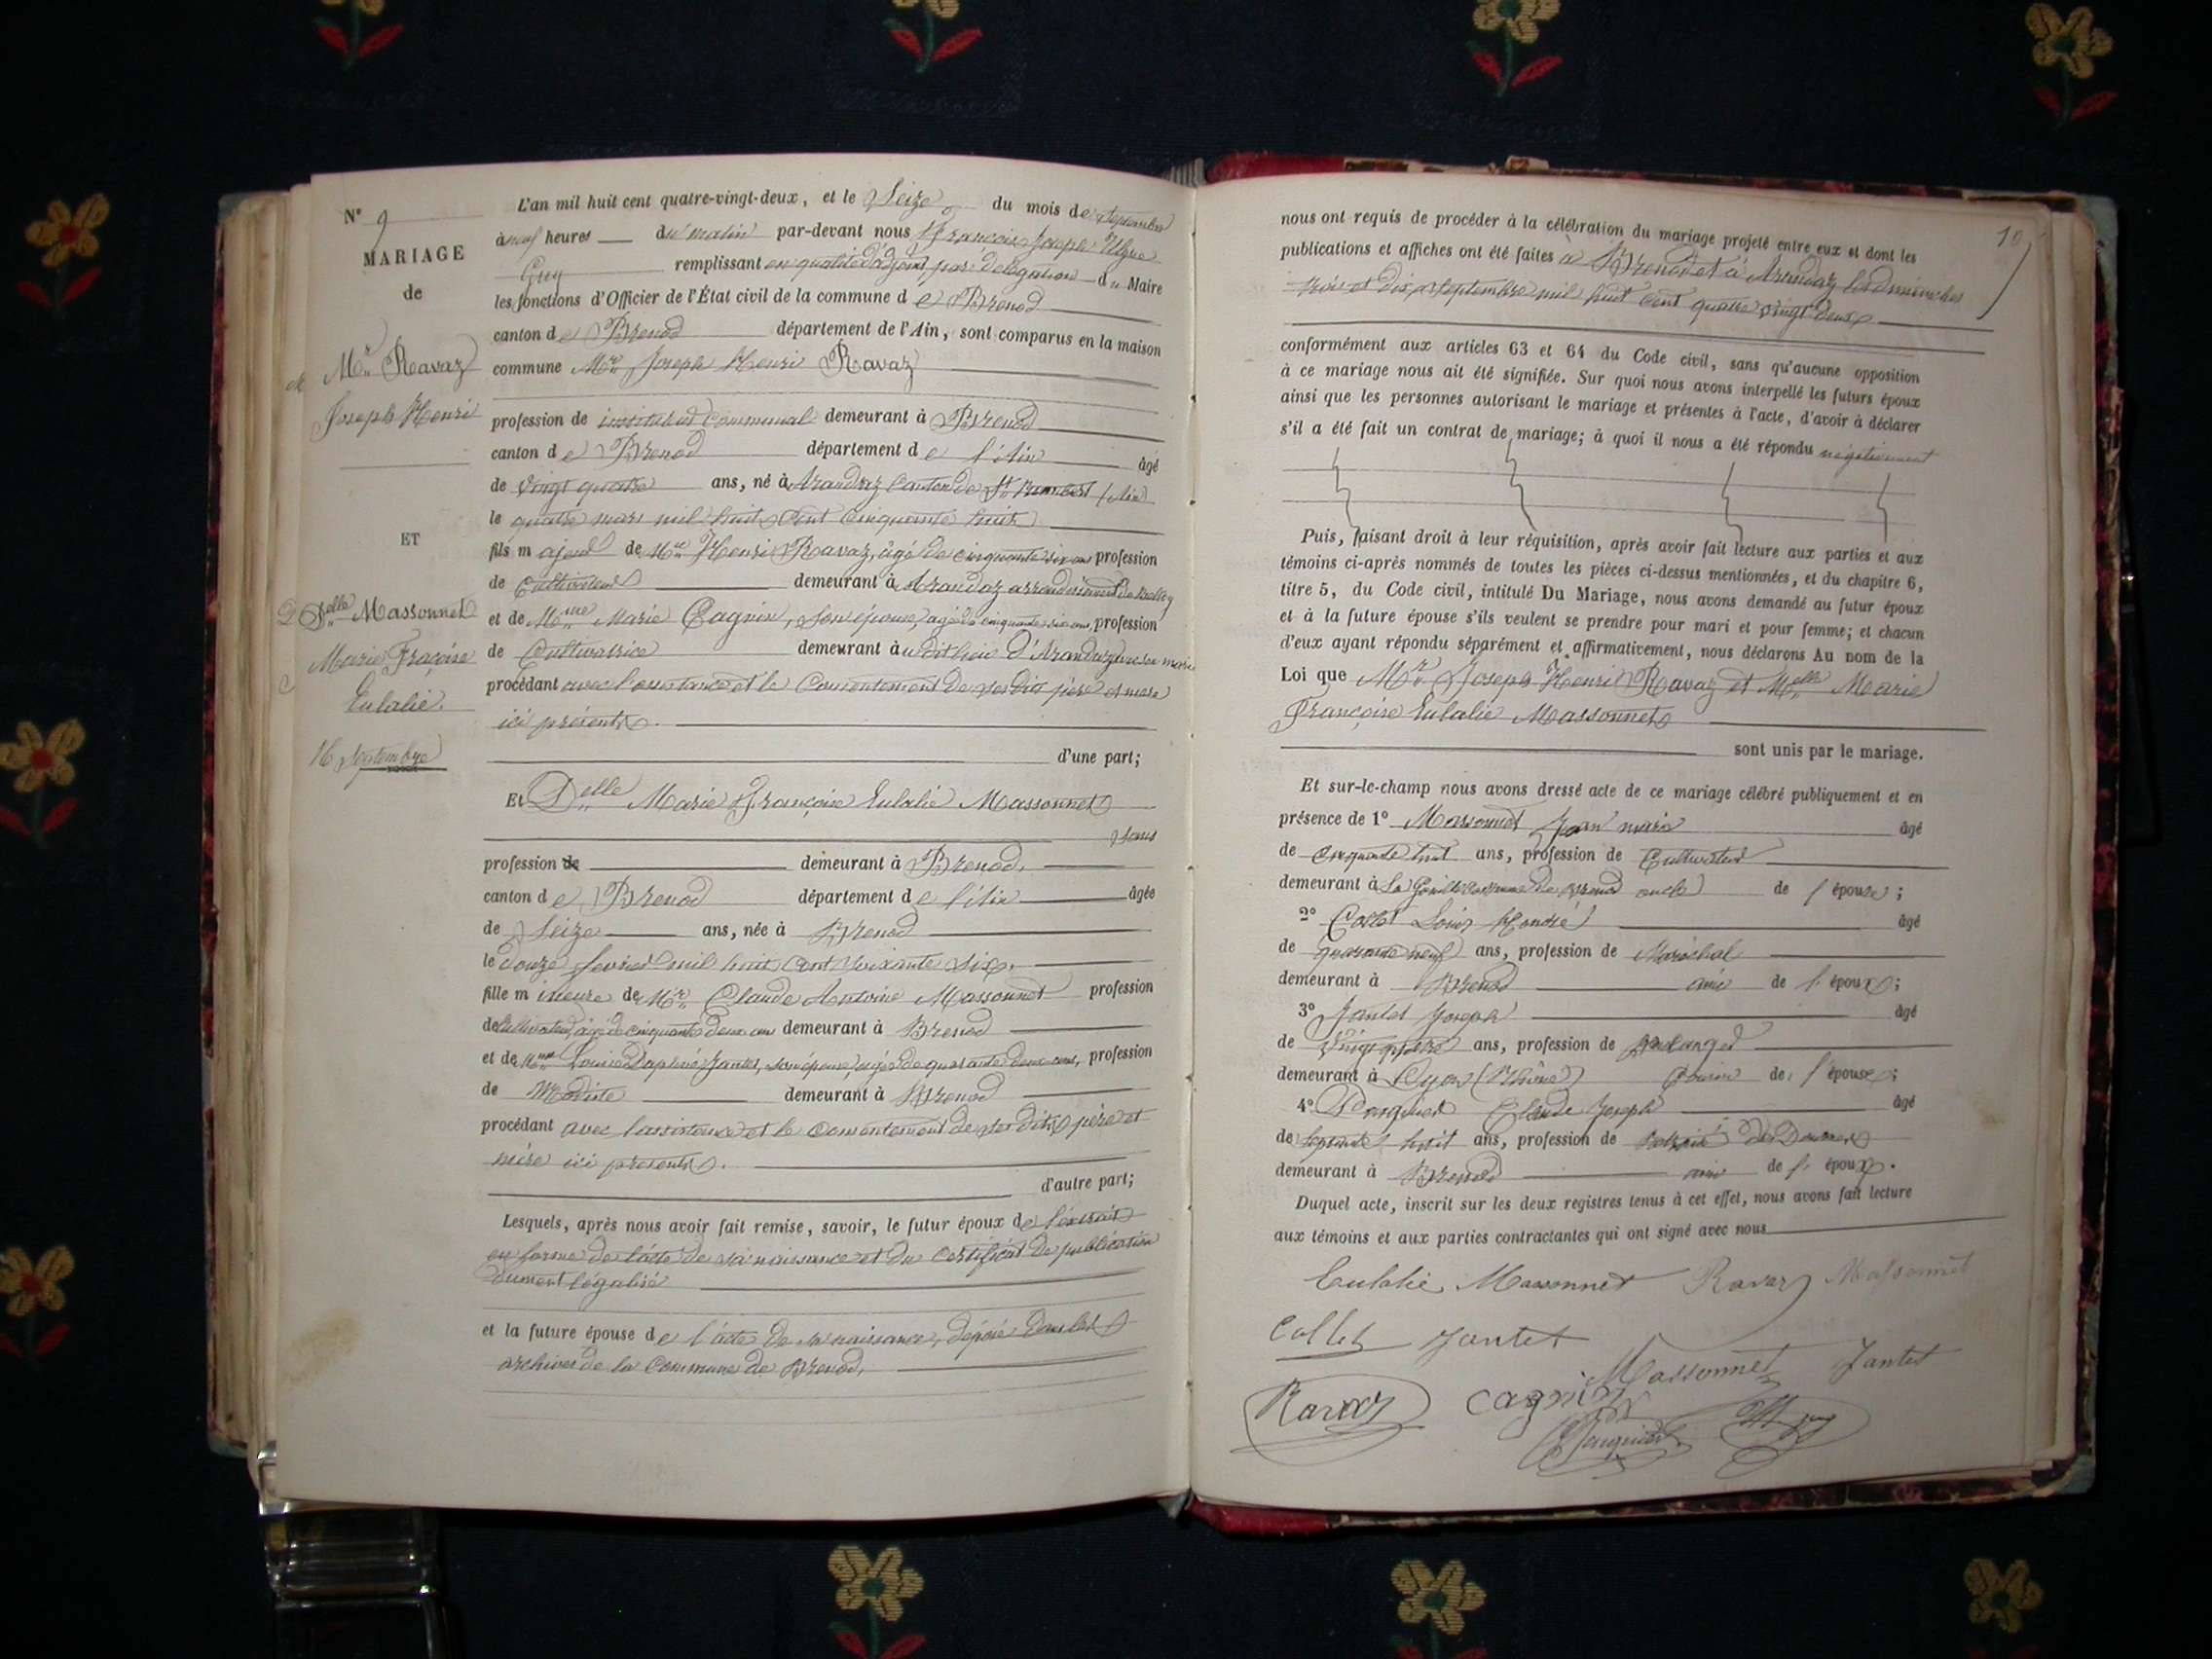 N° 9
MARIAGE
de
Mr Ravaz
Joseph Henri
ET
Delle Massonnet
Marie Fraçoise
Eulalie.
16 Septembre
L'an mil huit cent quatre-vingt-deux, et le Seize du mois de Septembre
à neuf heures du matin par-devant nous François Joseph
Guy remplissant en qualité d'adjoint par délégation du Maire
les fonctions d'Officier de l'État civil de la commune de Brenod
canton de Brenod département de l'Ain, sont comparus en la maison
commune Mr Joseph Henri Ravaz
profession de instituteur communal demeurant à Brenod
canton de Brenod département de l'Ain âgé
de vingt quatre ans, né à Arandaz canton de St Rambert (Ain)
le quatre mars mil huit cent cinquante huit
fils majeur de Mr Henri Ravaz, âgé de cinquante six ans profession
de Cultivateur demeurant à Arandaz arrondissement de Belley
et de Mme Marie Cagnin, son épouse, âgée de cinquante six ans, profession
de Cultivatrice demeurant au dit lieu d'Arandaz avec son mari
procédant avec l'assistance et le consentement de ses dits père et mère
ici présents.
d'une part;
Et Delle Marie Françoise Eulalie Massonnet
sans
profession de demeurant à Brenod,
canton de Brenod département de l'Ain âgée
de Seize ans, née à Brenod
le douze fevrier mil huit cent soixante six.
fille mineure de Mr Claude Antoine Massonnet profession
de Cultivateur, âgé de cinquante deux ans demeurant à Brenod
et de Mme Louise Daphné Jantet, son épouse, âgée de quarante deux ans, profession
de Modiste demeurant à Brenod
procédant avec l'assistance et le consentement de ses dits père et
mère ici presents.
d'autre part;
Lesquels, après nous avoir fait remise, savoir, le futur époux de l'extrait
en forme de l'acte de sa naissance et du certificat de publication
dument légalisé
et la future épouse de l'acte de sa naissance, déposé dans les
archives de la commune de Brenod,
10
nous ont requis de procéder à la célébration du mariage projeté entre eux et dont les
publications et affiches ont été faites à Brenod et à Arandaz les dimanches
trois et dix septembre mil huit cent quatre vingt deux
conformément aux articles 63 et 64 du Code civil, sans qu'aucune opposition
à ce mariage nous ait été signifiée. Sur quoi nous avons interpellé les futurs époux
ainsi que les personnes autorisant le mariage et présentes à l'acte, d'avoir à déclarer
s'il a été fait un contrat de mariage; à quoi il nous a été répondu négativement
Puis, faisant droit à leur réquisition, après avoir fait lecture aux parties et aux
témoins ci-après nommés de toutes les pièces ci-dessus mentionnées, et du chapitre 6,
titre 5, du Code civil, intitulé Du Mariage, nous avons demandé au futur époux
et à la future épouse s'ils veulent se prendre pour mari et pour femme; et chacun
d'eux ayant répondu séparément et affirmativement, nous déclarons Au nom de la
Loi que Mr Joseph Henri Ravaz et Melle Marie
Françoise Eulalie Massonnet
sont unis par le mariage.
Et sur-le-champ nous avons dressé acte de ce mariage célébré publiquement et en
présence de 1° Massonnet Jean marie âgé
de cinquante huit ans, profession de Cultivateur
demeurant à commune de Brenod oncle de l'épouse;
2° Collet Louis âgé
de quarante neuf ans, profession de Maréchal
demeurant à Brenod ami de l'époux;
3° Jantet Joseph âgé
de vingt quatre ans, profession de Boulanger
demeurant à Lyon (Rhône) Cousin de l'épouse;
4° Claude Joseph âgé
de septante huit ans, profession de retraité des Douanes
demeurant à Brenod ami de l'époux.
Duquel acte, inscrit sur les deux registres tenus à cet effet, nous avons fait lecture
aux témoins et aux parties contractantes qui ont signé avec nous
Eulalie Massonnet Ravaz Massonnet
Collet Jantet
Massonnet Jantet
Ravaz Cagnin